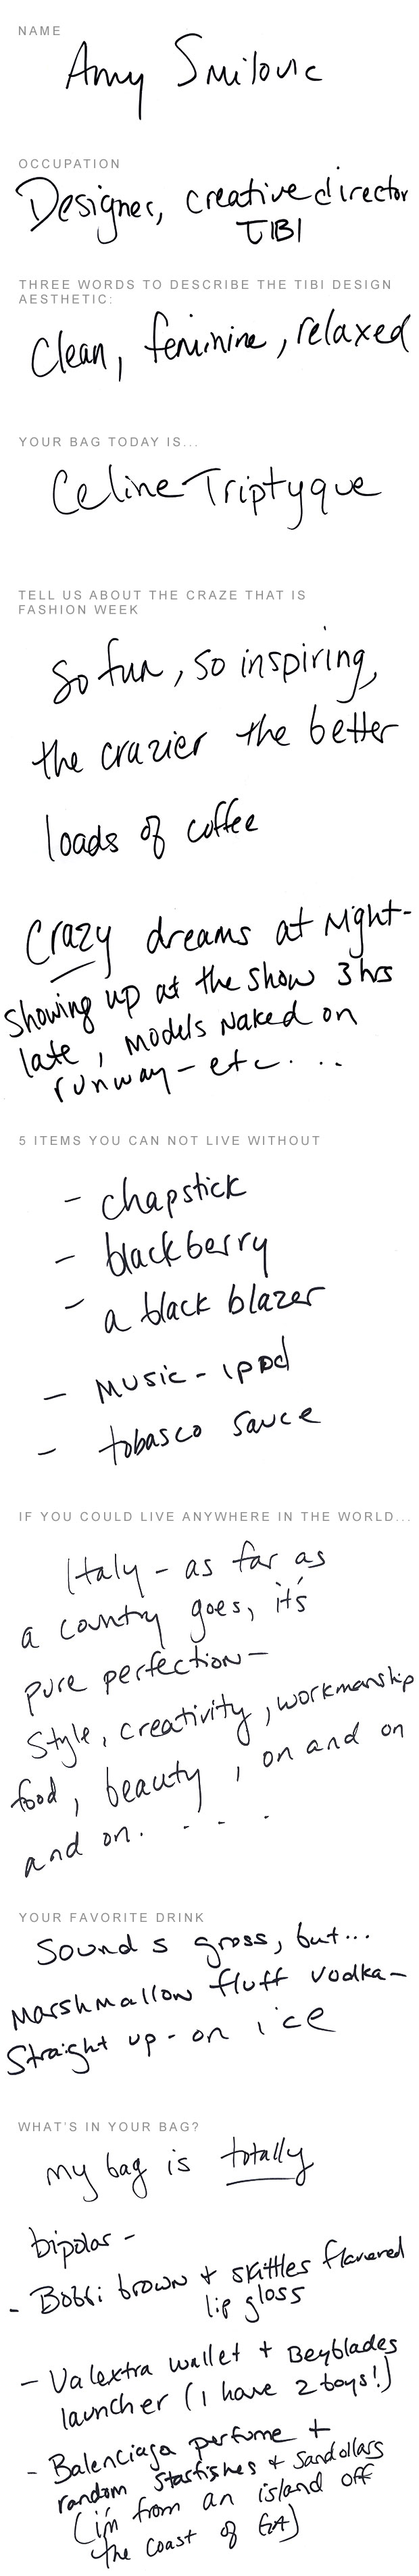 NAME
Amy Smilovic
OCCUPATION
Designer, creative director
TIBI
THREE WORDS TO DESCRIBE THE TIBI DESIGN
AESTHETIC:
Clean, feminine, relaxed
YOUR BAG TODAY IS...
Celine Triptyque
TELL US ABOUT THE CRAZE THAT IS
FASHION WEEK
So fun, so inspiring,
the crazier the better
loads of coffee
Crazy dreams at night-
showing up at the show 3 hrs
late, models naked on
runway - etc. . .
5 ITEMS YOU CAN NOT LIVE WITHOUT
- chapstick
- blackberry
- a black blazer
- music - ipod
- tobasco sauce
IF YOU COULD LIVE ANYWHERE IN THE WORLD...
Italy - as far as
a country goes, it's
pure perfection -
Style, creativity, workmanship
food, beauty, on and on
and on. . . .
YOUR FAVORITE DRINK
Sounds gross, but...
Marshmallow fluff vodka -
Straight up - on ice
WHAT'S IN YOUR BAG?
my bag is totally
bipolar -
- Bobbi brown + skittles flavored
lip gloss
- Valextra wallet + Beyblades
launcher (I have 2 boys!)
- Balenciaga perfume +
random starfishes + sandollars
(i'm from an island off
the coast of GA)